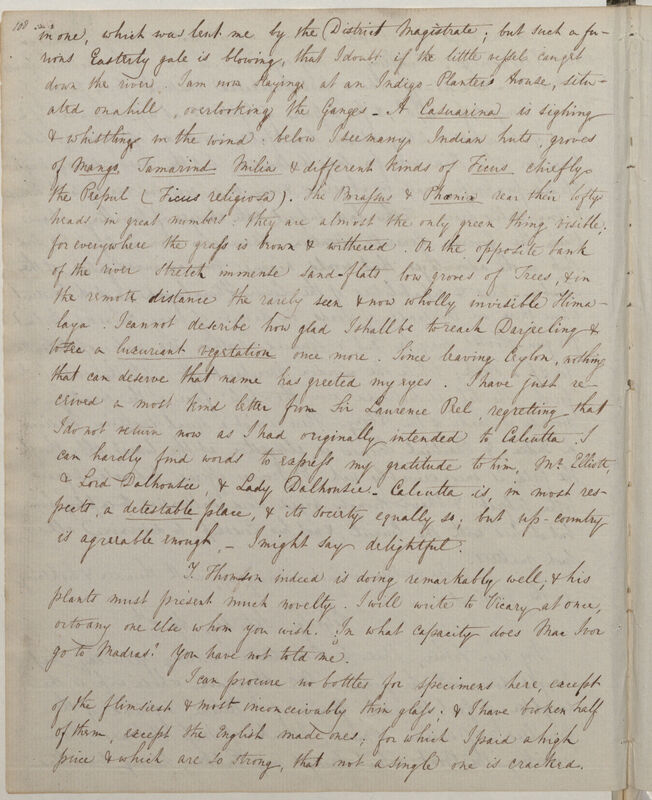 108
in one, which was lent me by the District Magistrate; but such a fu-
rious Easterly gale is blowing, that I doubt if the little vessel can get
down the river. I am now staying at an Indigo-Planters House, situ-
ated on a hill, overlooking the Ganges - A Casuarina is sighing
& whistling in the wind. below I see many Indian huts, groves
of Mango Tamarind Milia & different kinds of Ficus chiefly
the Peepul (Ficus religiosa). The Borassus & Phoenix rear their lofty
heads in great numbers: they are almost the only green thing visible;
for everywhere the grass is brown & withered. On the opposite bank
of the river stretch immense sand-flats low groves of Trees, & in
the remote distance the rarely seen & now wholly invisible Hima-
laya. I cannot describe how glad I shall be to reach Darjeeling &
to see a luxuriant vegetation once more. Since leaving Ceylon, nothing
that can deserve that name has greeted my eyes. I have just re-
ceived a most kind letter from Sir Laurence Peel, regretting that
I do not return now as I had originally intended to Calcutta. I
can hardly find words to express my gratitude to him, Mr. Elliott,
& Lord Dalhousie, & Lady Dalhousie - Calcutta is, in most res-
pects, a detestable place, & its society equally so; but up-country
is agreeable enough, - I might say delightful.
T. Thomson indeed is doing remarkably well, & his
plants must present much novelty. I will write to Vicary at once,
or to any one else whom you wish. In what capacity does Mac Ivor
go to Madras? You have not told me.
I can procure no bottles for specimens here, except
of the flimsiest & most inconceivably thin glass; & I have broken half
of them, except the English made ones; for which I paid a high
price & which are so strong, that not a single one is cracked.